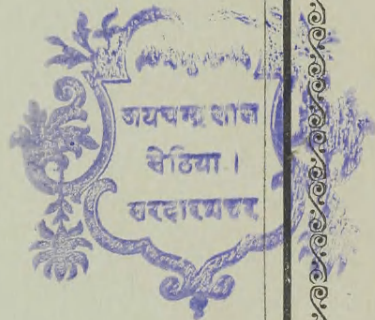 जयचन्द लाल
सेठिया ।
सरदारशहर